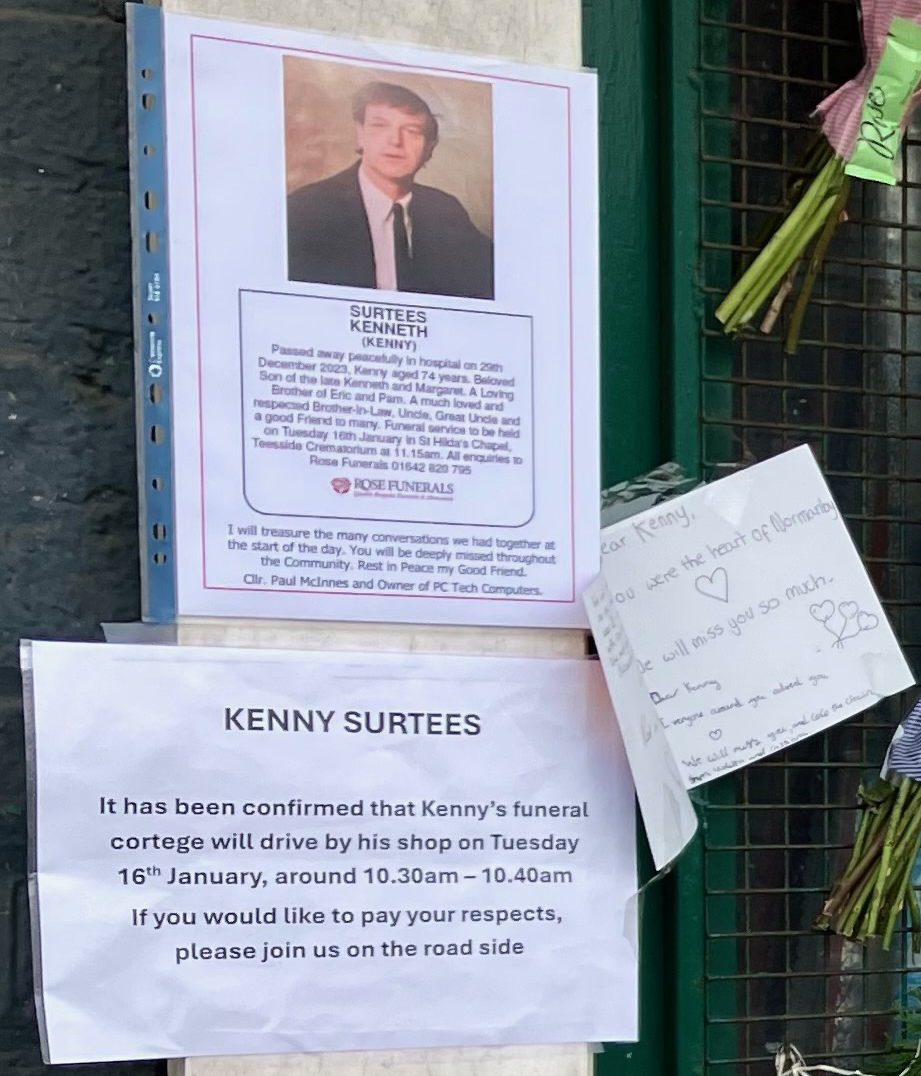 SURTEES
KENNETH
(KENNY)
Passed away peacefully in hospital on 29th
December 2023, Kenny aged 74 years. Beloved
Son of the late Kenneth and Margaret. A Loving
Brother of Eric and Pam. A much loved and
respected Brother-in-Law, Uncle, Great Uncle and
a good Friend to many. Funeral service to be held
on Tuesday 16th January in St Hilda's Chapel,
Teesside Crematorium at 11.15am. All enquiries to
Rose Funerals 01642 820 795
ROSE FUNERALS
I will treasure the many conversations we had together at
the start of the day. You will be deeply missed throughout
the Community. Rest in Peace my Good Friend.
Cllr. Paul McInnes and Owner of PC Tech Computers.
KENNY SURTEES
It has been confirmed that Kenny's funeral
cortege will drive by his shop on Tuesday
16th January, around 10.30am – 10.40am
If you would like to pay your respects,
please join us on the road side
ear Kenny,
ou were the heart of Normanby
e will miss you so much.
Dear Kenny
Everyone around you adored you
We will miss you and